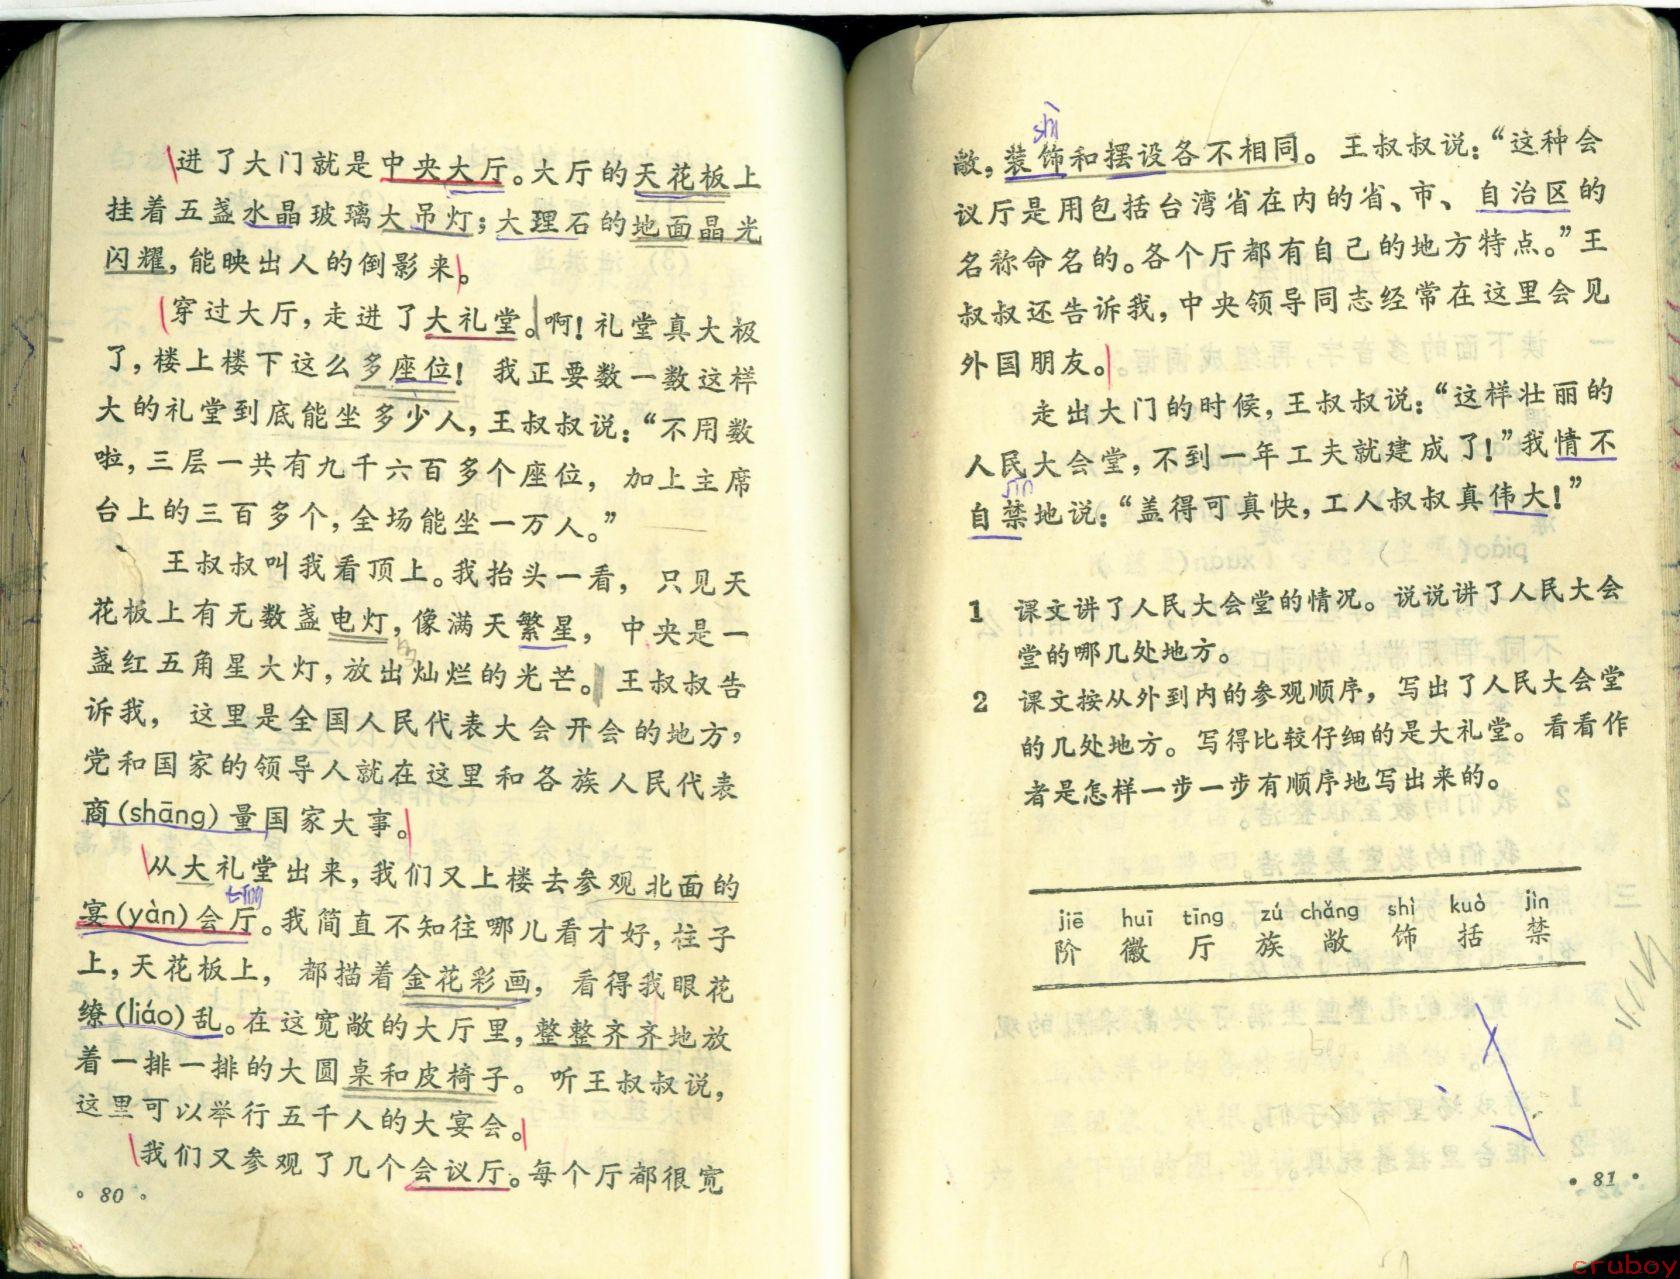 进了大门就是中央大厅。大厅的天花板上
挂着五盏水晶玻璃大吊灯；大理石的地面晶光
闪耀，能映出人的倒影来。
穿过大厅，走进了大礼堂。啊！礼堂真大极
了，楼上楼下这么多座位！我正要数一数这样
大的礼堂到底能坐多少人，王叔叔说：“不用数
啦，三层一共有九千六百多个座位，加上主席
台上的三百多个，全场能坐一万人。”
王叔叔叫我看顶上。我抬头一看，只见天
花板上有无数盏电灯，像满天繁星，中央是一
盏红五角星大灯，放出灿烂的光芒。王叔叔告
诉我，这里是全国人民代表大会开会的地方，
党和国家的领导人就在这里和各族人民代表
商(shāng)量国家大事。
从大礼堂出来，我们又上楼去参观北面的
tīng
宴(yàn)会厅。我简直不知往哪儿看才好，柱子
上，天花板上，都描着金花彩画，看得我眼花
缭(liáo)乱。在这宽敞的大厅里，整整齐齐地放
着一排一排的大圆桌和皮椅子。听王叔叔说，
这里可以举行五千人的大宴会。
我们又参观了几个会议厅。每个厅都很宽
80
shì
敞，装饰和摆设各不相同。王叔叔说：“这种会
议厅是用包括台湾省在内的省、市、自治区的
名称命名的。各个厅都有自己的地方特点。”王
叔叔还告诉我，中央领导同志经常在这里会见
外国朋友。
走出大门的时候，王叔叔说：“这样壮丽的
人民大会堂，不到一年工夫就建成了！”我情不
jīn
自禁地说：“盖得可真快，工人叔叔真伟大！”
1 课文讲了人民大会堂的情况。说说讲了人民大会
堂的哪几处地方。
2 课文按从外到内的参观顺序，写出了人民大会堂
的几处地方。写得比较仔细的是大礼堂。看看作
者是怎样一步一步有顺序地写出来的。
jiē huī tīng zú chǎng shì kuò jìn
阶 徽 厅 族 敞 饰 括 禁
81
cruboy